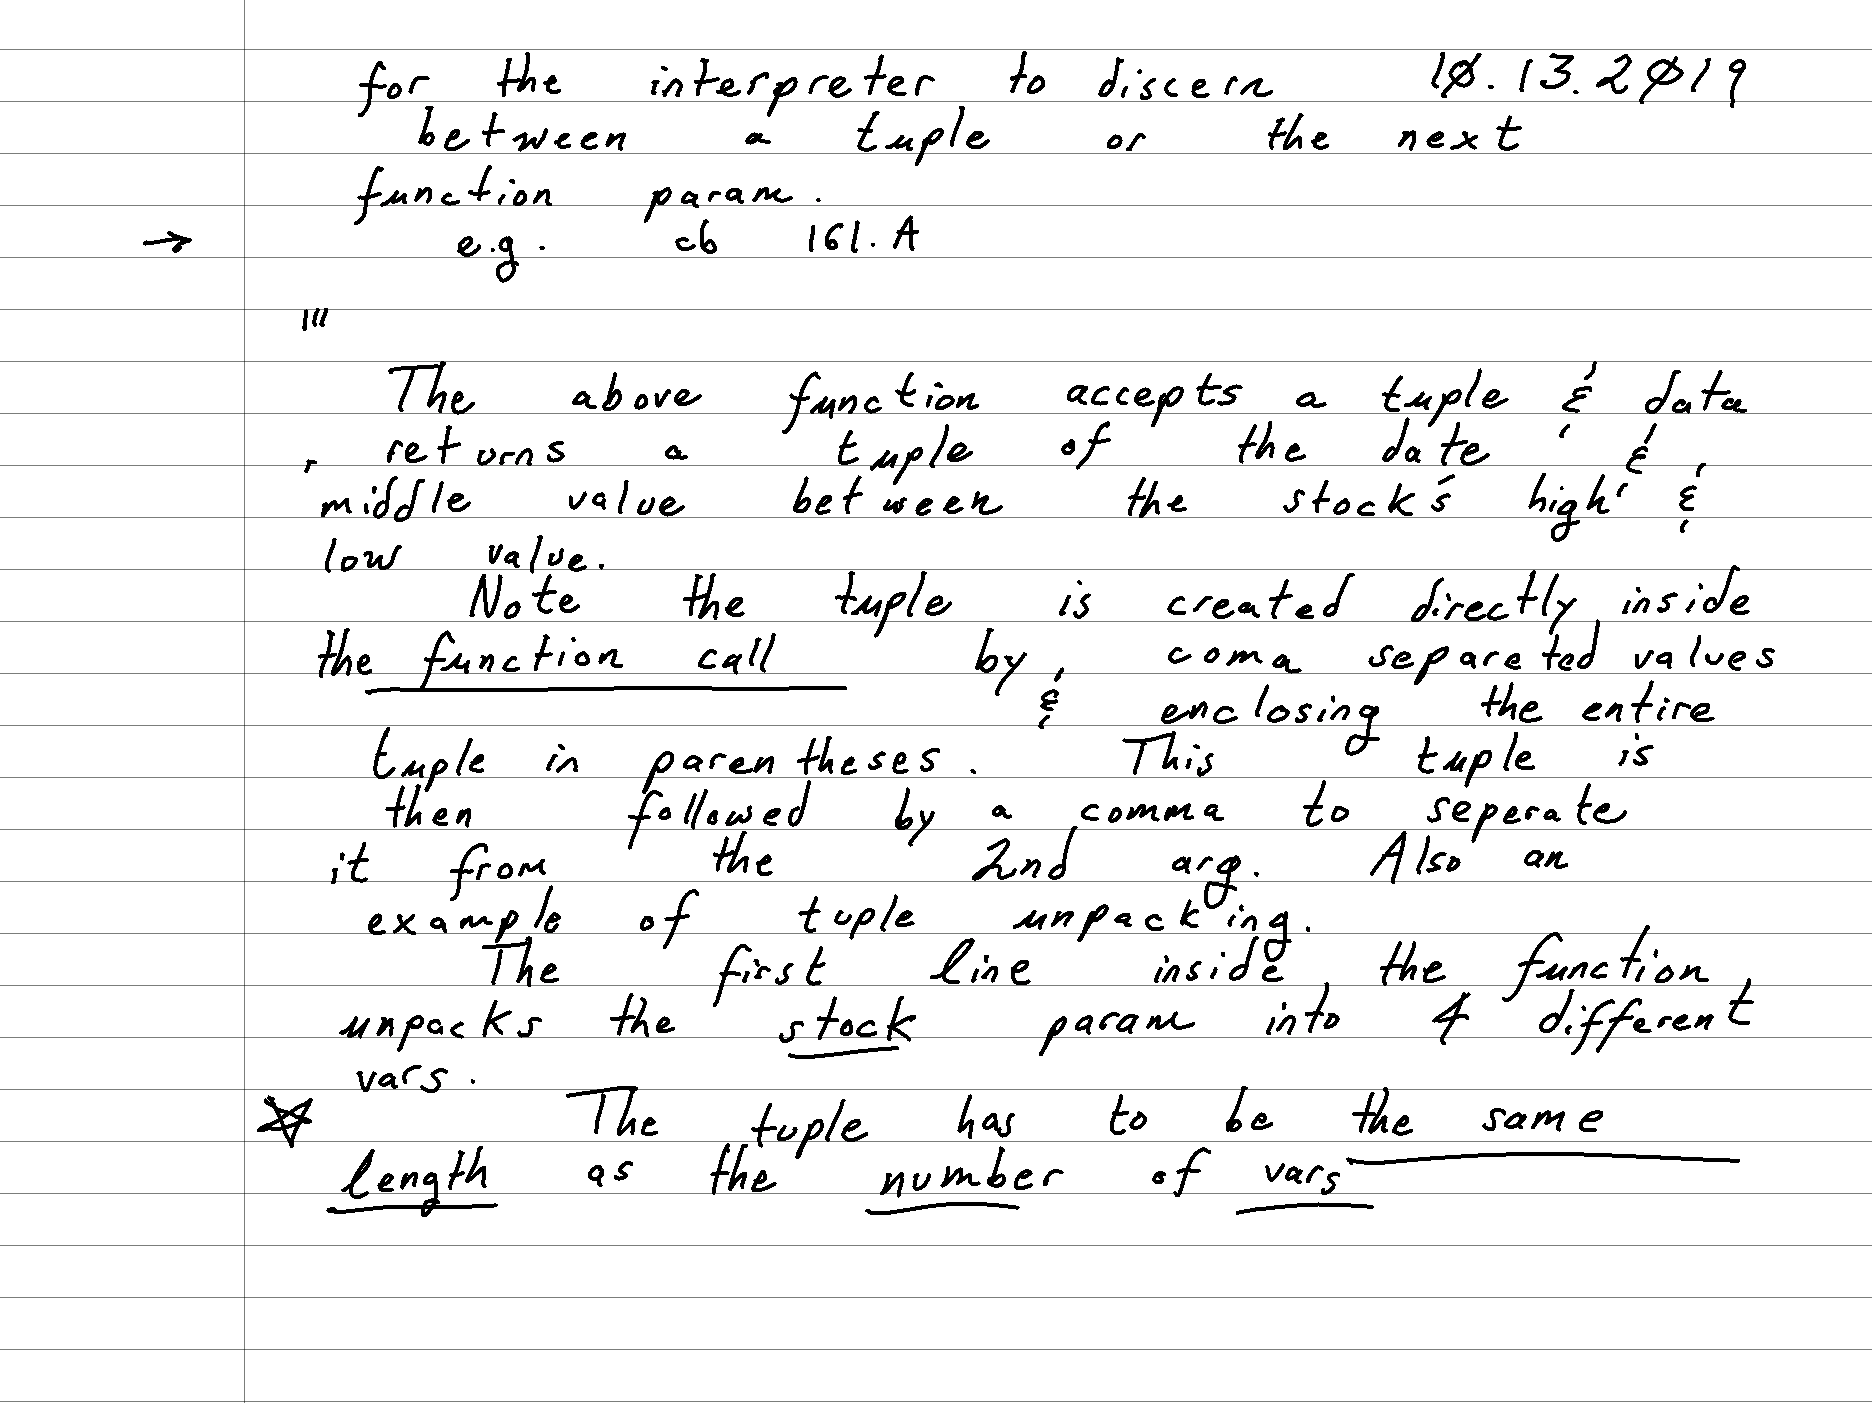 for the interpreter to discern 10.13.2019
between a tuple or the next
function param.
→ e.g. cb 161.A
"'
The above function accepts a tuple & data
, returns a tuple of the date &
middle value between the stock's high &
low value.
Note the tuple is created directly inside
the function call by coma separated values
& enclosing the entire
tuple in parentheses. This tuple is
then followed by a comma to seperate
it from the 2nd arg. Also an
example of tuple unpacking.
The first line inside the function
unpacks the stock param into 4 different
vars.
☆ The tuple has to be the same
length as the number of vars